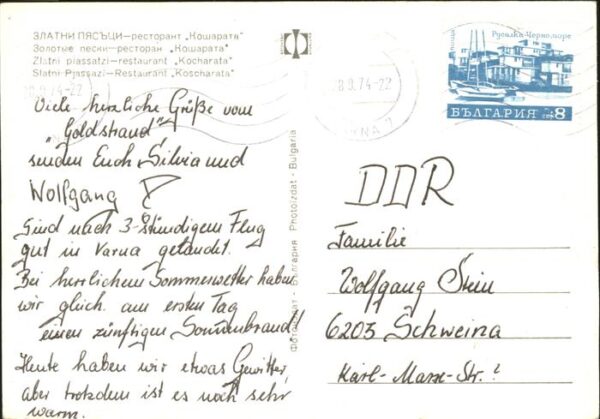 ЗЛАТНИ ПЯСЪЦИ—ресторант „Кошарата"
Золотые пески—ресторан „Кошарата"
Zlatni piassatzi—restaurant „Kocharata"
Slatni Pjassazi—Restaurant "Koscharata"
Viele herzliche Grüße vom
„Goldstrand"
senden Euch Silvia und
Wolfgang
Sind nach 3-stündigem Flug
gut in Varna gelandet.
Bei herrlichem Sommerwetter haben
wir gleich am ersten Tag
einen zünftigen Sonnenbrand!
Heute haben wir etwas Gewitter,
aber trotzdem ist es noch sehr
warm.
Фотоиздат - България Photoizdat - Bulgaria
28.9.74-22
28.9.74-22
поща Русалка-Черноморе
БЪЛГАРИЯ 8
DDR
Familie
Wolfgang Stein
6205 Schweina
Karl-Marx-Str. ?